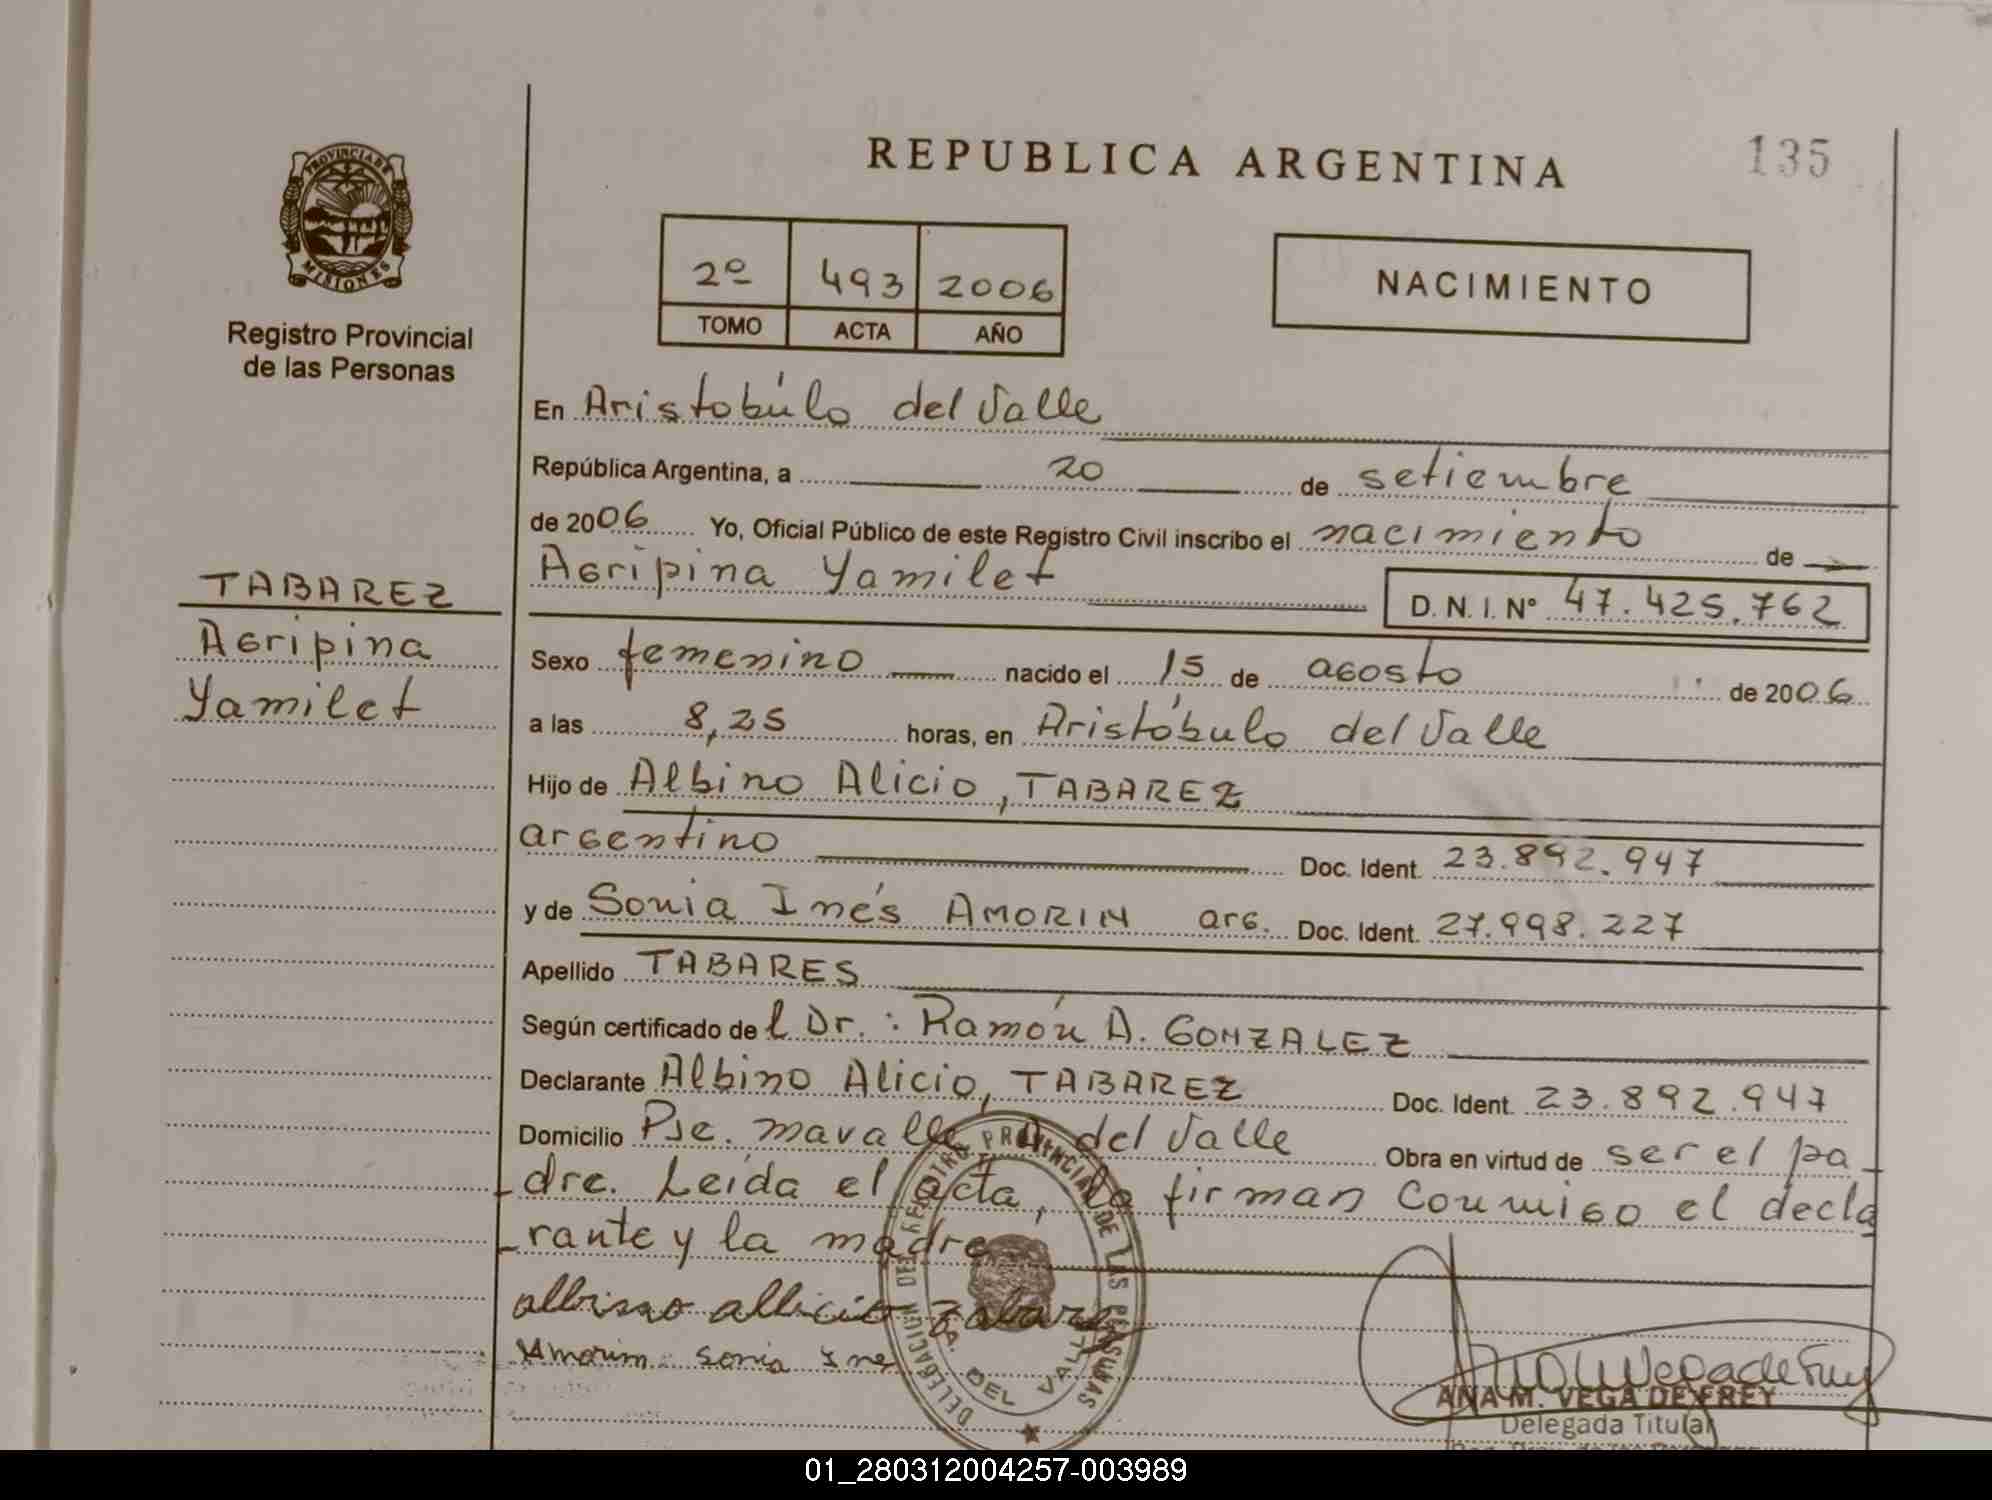 135
REPUBLICA ARGENTINA
PROVINCIA DE
MISIONES
Registro Provincial
de las Personas
2º 493 2006
TOMO ACTA AÑO
NACIMIENTO
En Aristobúlo del Valle
República Argentina, a 20 de setiembre
de 2006 Yo, Oficial Público de este Registro Civil inscribo el nacimiento de
Agripina Yamilet
D. N. I. Nº 47.425.762
TABAREZ
Agripina
Yamilet
Sexo femenino nacido el 15 de agosto de 2006
a las 8,25 horas, en Aristóbulo del Valle
Hijo de Albino Alicio, TABAREZ
argentino Doc. Ident. 23.892.947
y de Sonia Inés AMORIN arg. Doc. Ident. 27.998.227
Apellido TABARES
Según certificado de l Dr.: Ramón A. GONZALEZ
Declarante Albino Alicio, TABAREZ Doc. Ident. 23.892.947
Domicilio Pje. mavalle, A del Valle Obra en virtud de ser el pa_
_dre. Leída el acta, la firman conmigo el decla
_rante y la madre
albino allicio
Amorim Sonia Ines
DELEGACION DEL REGISTRO PROVINCIAL DE LAS PERSONAS
A. DEL VALLE
ANA M. VEGA DE FREY
Delegada Titular
01_280312004257-003989